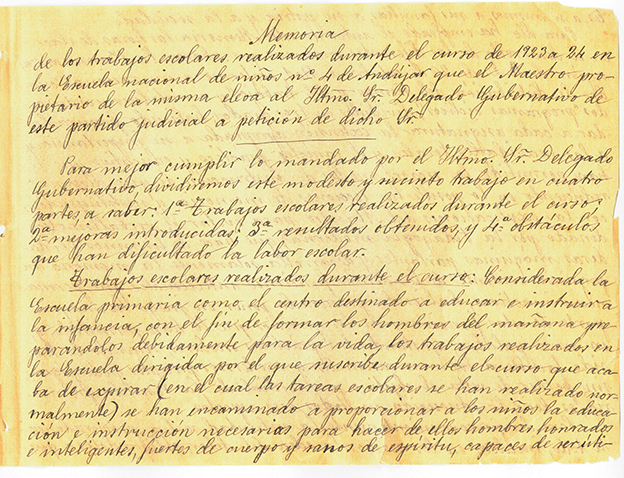 Memoria
de los trabajos escolares realizados durante el curso de 1923 a 24 en
la Escuela nacional de niños nº 4 de Andújar que el Maestro pro-
pietario de la misma eleva al Iltmo. Sr. Delegado Gubernativo de
este partido judicial a petición de dicho Sr.
Para mejor cumplir lo mandado por el Iltmo. Sr. Delegado
Gubernativo, dividiremos este modesto y sucinto trabajo en cuatro
partes, a saber: 1ª Trabajos escolares realizados durante el curso;
2ª mejoras introducidas; 3ª resultados obtenidos, y 4ª obstáculos
que han dificultado la labor escolar.
Trabajos escolares realizados durante el curso: Considerada la
Escuela primaria como el centro destinado a educar e instruir a
la infancia, con el fin de formar los hombres del mañana pre-
parándolos debidamente para la vida, los trabajos realizados en
la Escuela dirigida por el que suscribe durante el curso que aca-
ba de expirar (en el cual las tareas escolares se han realizado nor-
malmente) se han encaminado a proporcionar a los niños la educa-
ción e instrucción necesarias para hacer de ellos hombres honrados
e inteligentes, fuertes de cuerpo y sanos de espíritu, capaces de ser úti-